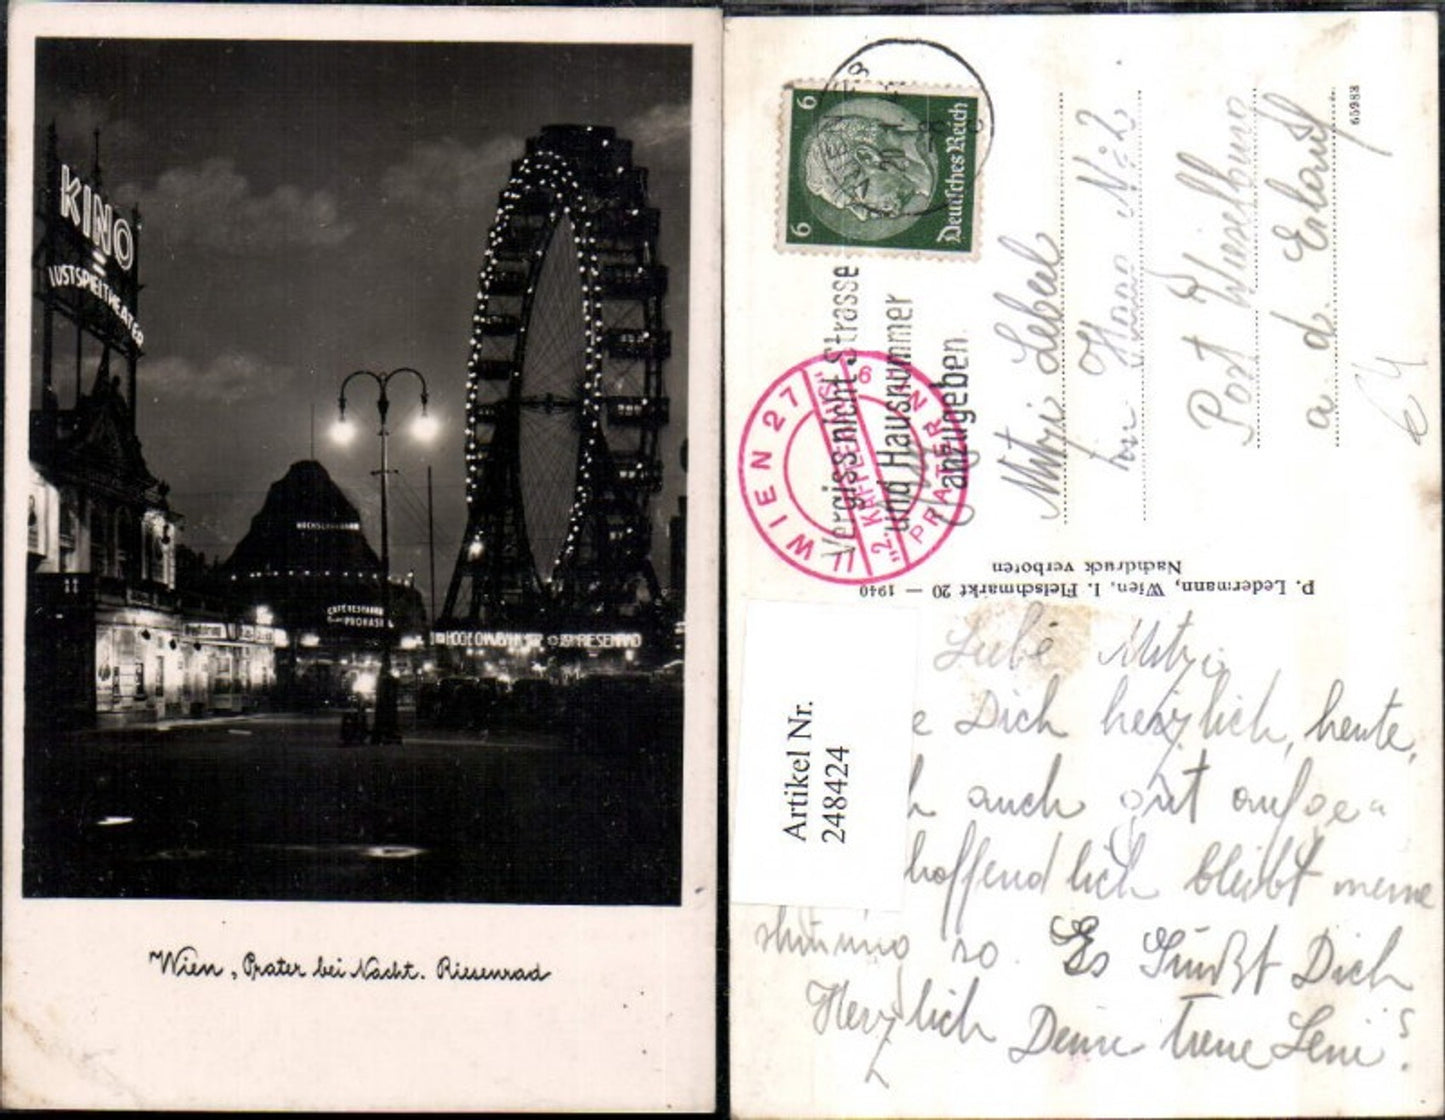 KINO
LUSTSPIELTHEATER
HOCHSCHAUBAHN
CAFE RESTAURANT
PROHASKA
RIESENRAD
Wien, Prater bei Nacht. Riesenrad
6 6
Deutsches Reich
WIEN
Vergiss nicht Strasse
und Hausnummer
anzugeben
WIEN 27
PRATER
II
"2. KAFFEEHAUS"
Mitzi
in Haag N: 2
Post Wieselburg
a. d. Erlauf
65988
P. Ledermann, Wien, I. Fleischmarkt 20 — 1940
Nachdruck verboten
Artikel Nr.
248424
Liebe Mitzi
e Dich herzlich, heute,
h auch gut aufge-
hoffendlich bleibt meine
so. Es Grüßt Dich
Herzlich Deine treue Leni